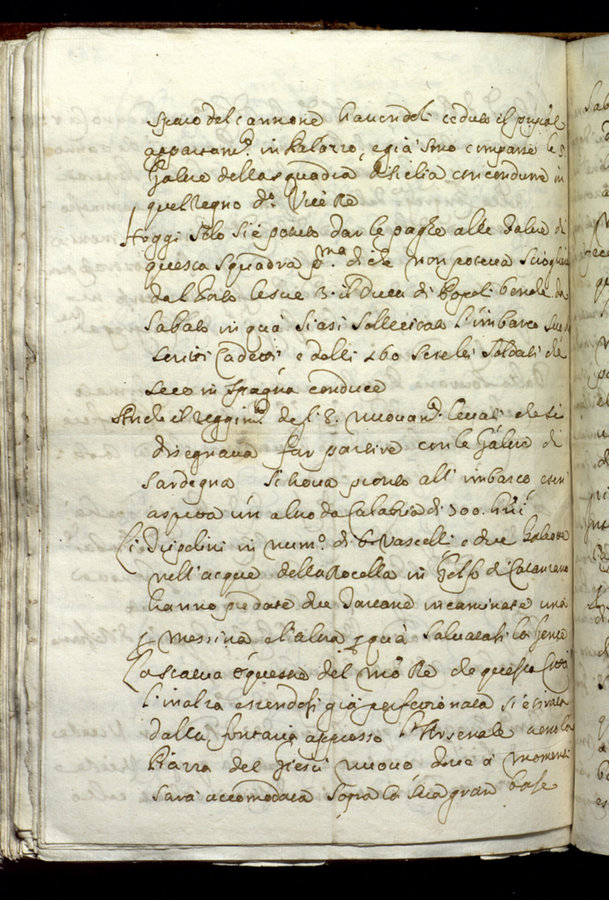 sparo del cannone havendoli ceduto il princi.le
appartam.to in Palazzo, e già sono comparse le 5
Galere della squadra di Sicilia con condurre in
quel Regno d.o Vice Re
Hoggi solo si è potuto dar le paghe alle Galere di
questa squadra p.ma di che non poteva scioglier
dal Porto le sue 3. il Duca di Popoli benche da
Sabato in quà si asi sollecitato l'imbarco
Cadetti e delli 260 Soldati che
seco in Spagna conduce
Anche il reggim.to de 8. nuovam.te levati che si
disegnava far partire con le Galere di
Sardegna si trova pronto all'imbarco e se ne
aspetta un altro da Calabria di 300. h'ni
Li in num.o di 6 Vascelli e due Galeotte
nell'acque della Rocella in Golfo di Catanzaro
hanno predate due Tartane incaminate una
p Messina e l'altra p quà salvatasi la gente
La statua equestre del mo Re che questa Città
l'inalza essendosi già perfettionata si è tirata
dalla fonderia appresso l'Arsenale verso la
Piazza del Giesù nuovo dove a momenti
sarà accomodata sopra la sua gran base